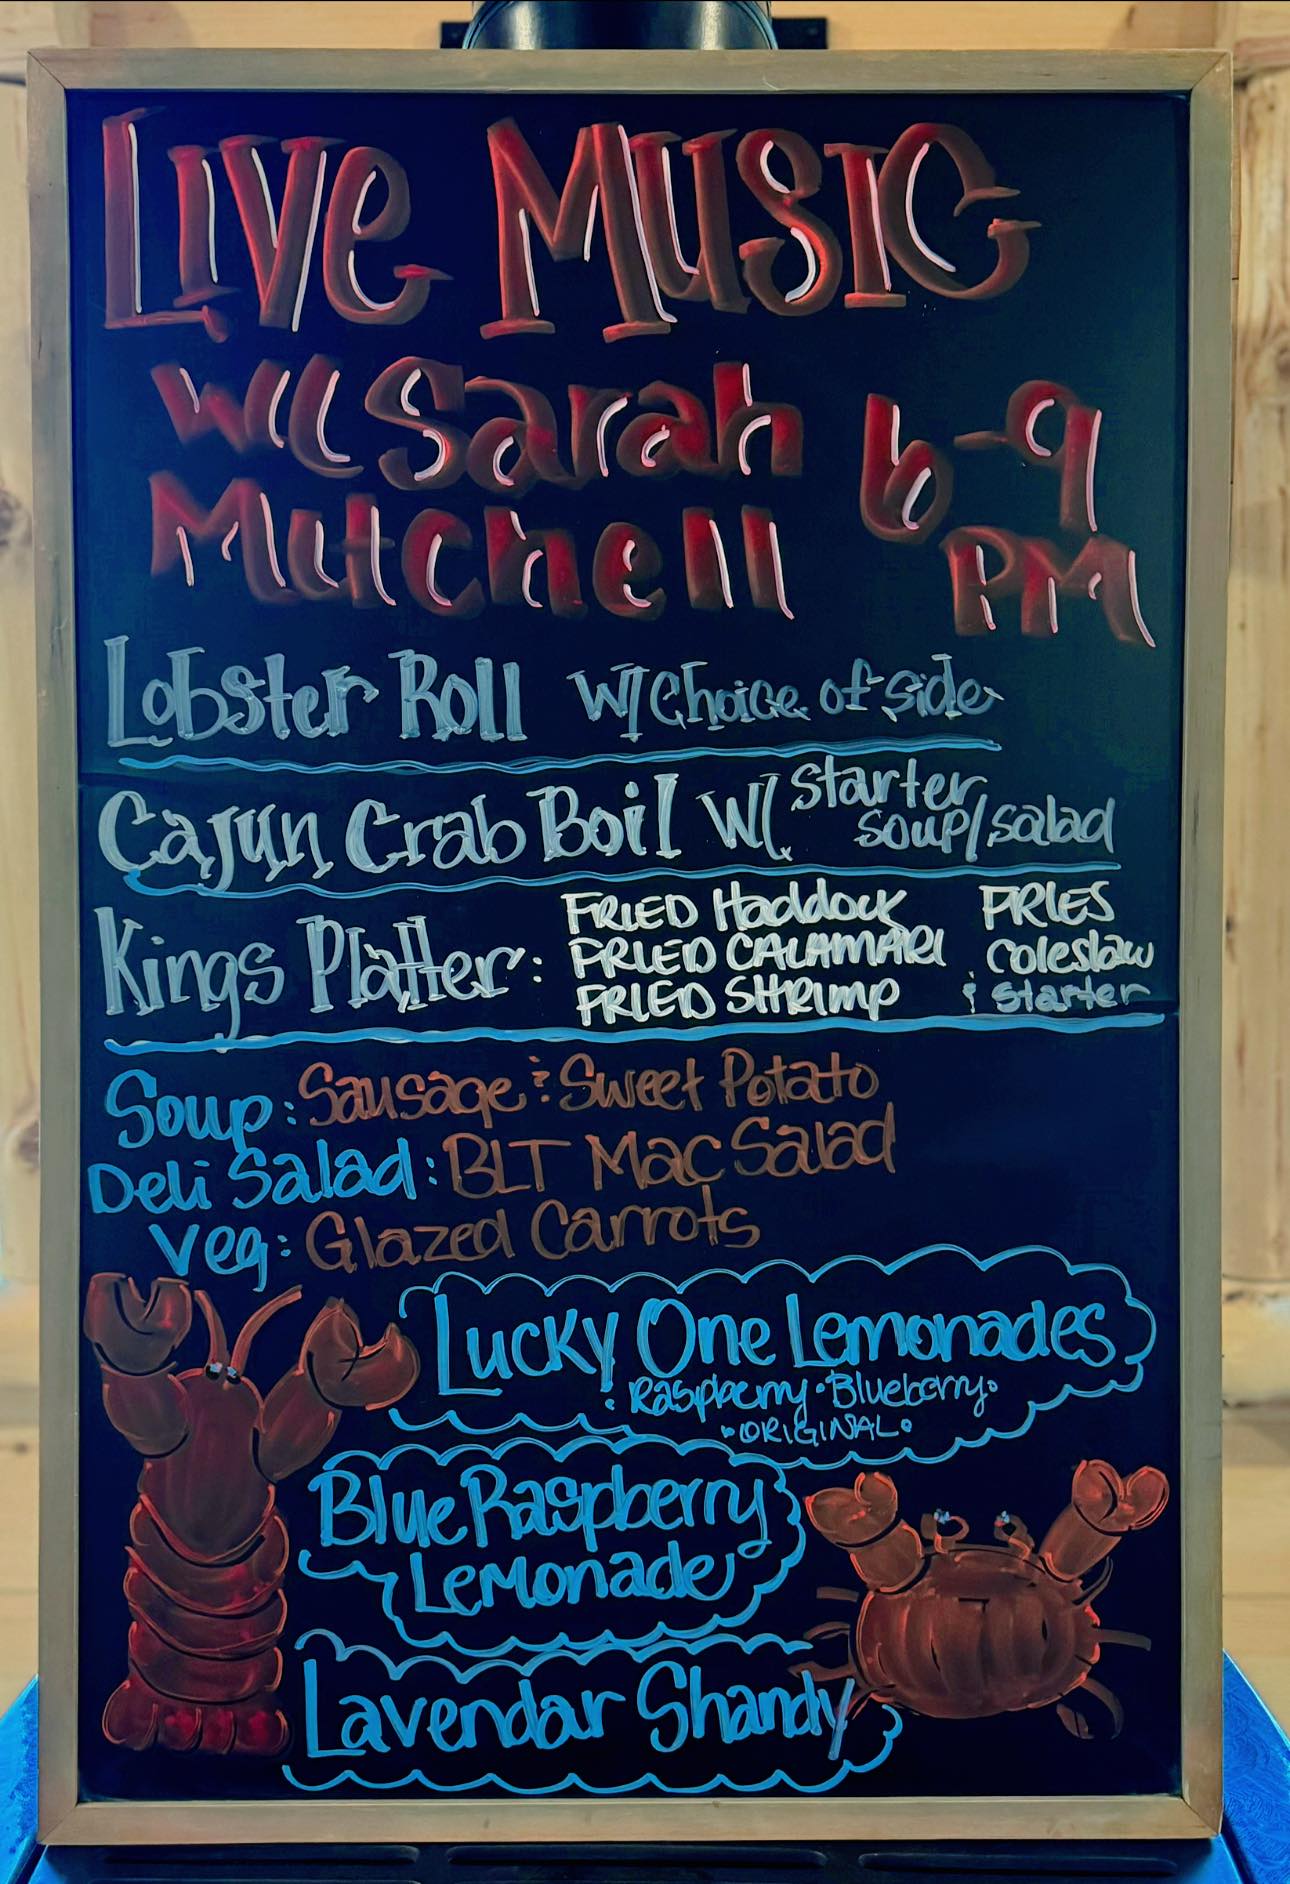 Live Music
w/ Sarah
Mitchell
6-9
PM
Lobster Roll w/ Choice of side
Cajun Crab Boil w/ starter
soup/salad
Kings Platter:
FRIED Haddock
FRIED CALAMARI
FRIED SHRIMP
FRIES
Coleslaw
& starter
Soup: Sausage & Sweet Potato
Deli Salad: BLT Mac Salad
Veg: Glazed Carrots
Lucky One Lemonades
Raspberry • Blueberry •
• ORIGINAL •
Blue Raspberry
Lemonade
Lavendar Shandy